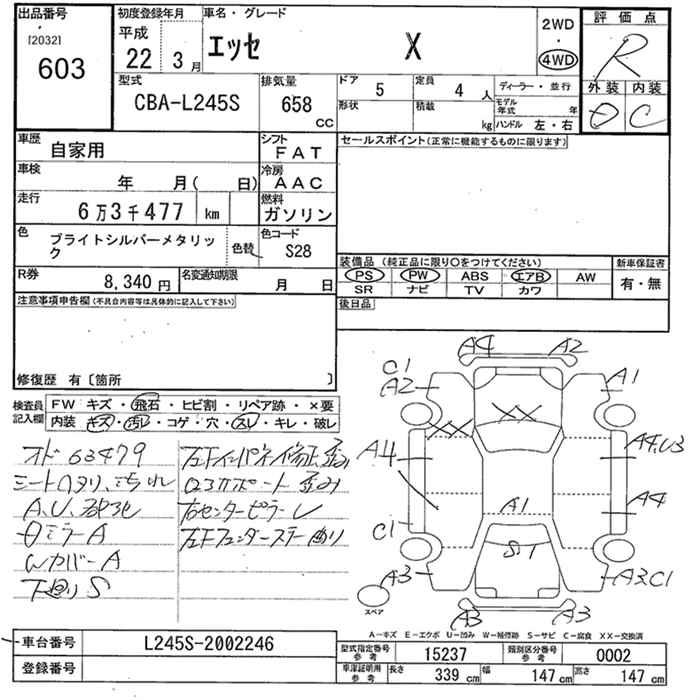 出品番号
[2032]
603
初度登録年月
平成
22 3月
車名・グレード
エッセ X
2WD
・
4WD
評価点
R
外装 内装
C
型式
CBA-L245S
排気量
658
CC
ドア
5
定員
4 人
形状
積載
kg
ディーラー・並行
モデル年式 年
ハンドル 左・右
車歴
自家用
シフト
FAT
車検
年 月( 日)
冷房
AAC
走行
6万3千477 km
燃料
ガソリン
色
ブライトシルバーメタリック
色替
色コード
S28
R券
8,340 円
名変通知期限
月 日
セールスポイント(正常に機能するものに限ります)
装備品(純正品に限り○をつけてください)
新車保証書
PS PW ABS エアB AW
SR ナビ TV カワ
有・無
後日品
注意事項申告欄(不具合内容等は具体的に記入して下さい)
修復歴 有〔箇所 〕
検査員記入欄
FW キズ・飛石・ヒビ割・リペア跡・×要
内装 キズ・汚レ・コゲ・穴・スレ・キレ・破レ
オド 63479
シートヘタリ、汚れ
ミラーA
WカバーA
下廻りS
A4 A2
A2
A1
XX XX
A4
A4
C1
A1
S1
A3
A3C1
A3 A3
スペア
A-キズ E-エクボ U-凹み W-補修跡 S-サビ C-腐食 XX-交換済
車台番号
L245S-2002246
登録番号
型式指定番号 参考
15237
類別区分番号 参考
0002
車庫証明用 参考
長さ 339 cm
幅 147 cm
高さ 147 cm